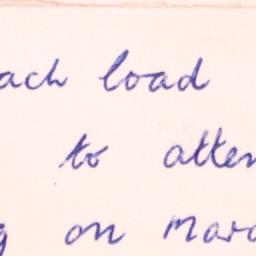 ach load
to atten
g on Marc